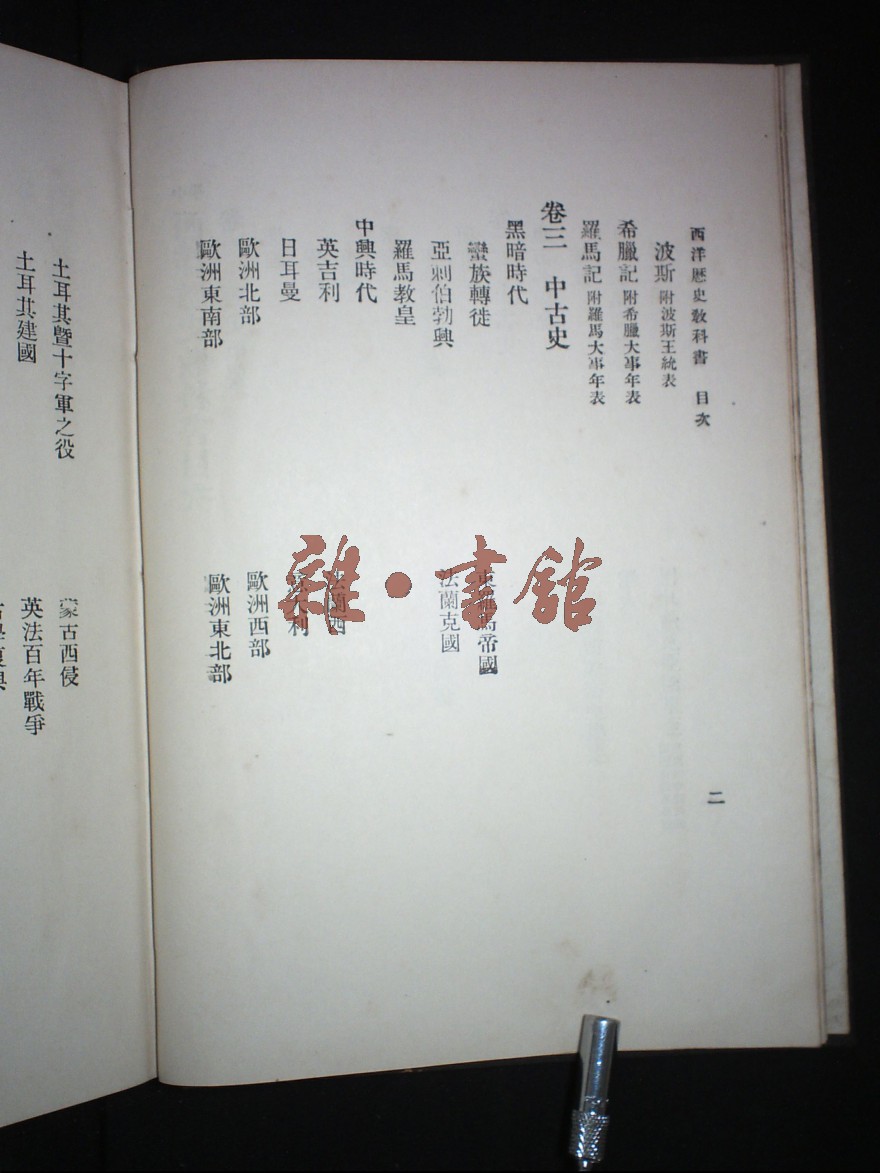 西洋歷史教科書 目次
二
波斯 附波斯王統表
希臘記 附希臘大事年表
羅馬記 附羅馬大事年表
卷三 中古史
黑暗時代
蠻族轉徙 東羅馬帝國
亞剌伯勃興 法蘭克國
羅馬教皇
中興時代
英吉利 法蘭西
日耳曼 意大利
歐洲北部 歐洲西部
歐洲東南部 歐洲東北部
土耳其暨十字軍之役 蒙古西侵
土耳其建國 英法百年戰爭
雜·書館